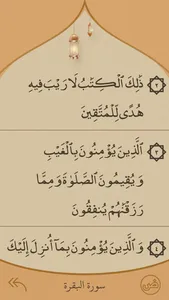 ٢ ذَٰلِكَ ٱلْكِتَٰبُ لَا رَيْبَ فِيهِ
هُدًى لِّلْمُتَّقِينَ
٣ ٱلَّذِينَ يُؤْمِنُونَ بِٱلْغَيْبِ
وَيُقِيمُونَ ٱلصَّلَوٰةَ وَمِمَّا
رَزَقْنَٰهُمْ يُنفِقُونَ
٤ وَٱلَّذِينَ يُؤْمِنُونَ بِمَآ أُنزِلَ إِلَيْكَ
سورة البقرة